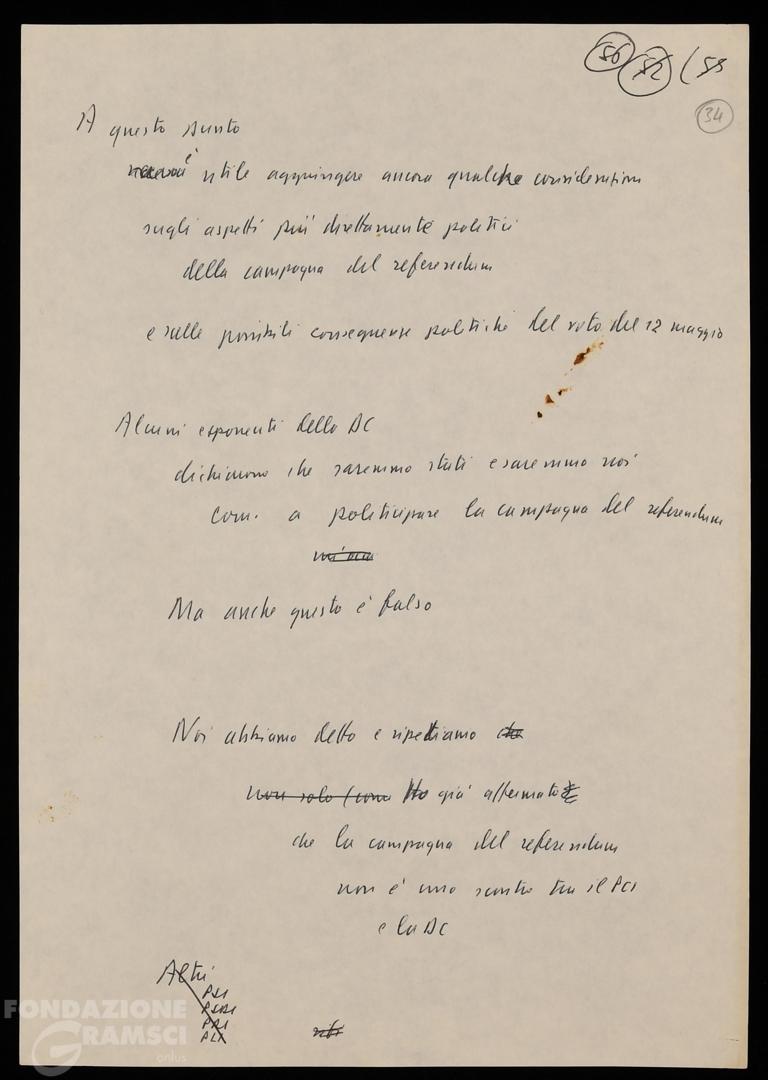 56 52 (53
34
A questo punto
è
utile aggiungere ancora qualche considerazione
sugli aspetti più direttamente politici
della campagna del referendum
e sulle possibili conseguenze politiche del voto del 12 maggio
Alcuni esponenti della DC
dichiarano che saremmo stati e saremmo noi
com. a politicizzare la campagna del referendum
Ma anche questo è falso
Noi abbiamo detto e ripetiamo che
non solo (come ho già affermato)
che la campagna del referendum
non è uno scontro tra il PCI
e la DC
Altri
PSI
PSDI
PRI
PLI
FONDAZIONE
GRAMSCI
onlus